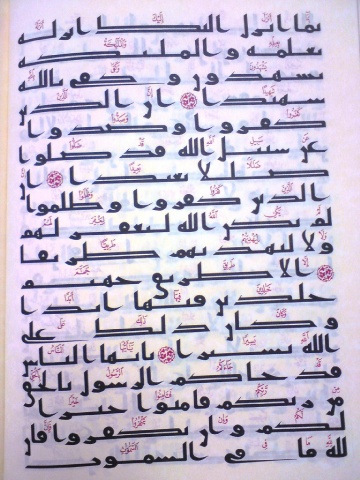 بما انزل اليك انزله
بعلمه والملئكه
يشهدون وكفى بالله
شهيدا ان الذين
كفروا وصدوا
عن سبيل الله قد ضلوا
ضللا بعيدا ان
الذين كفروا وظلموا
لم يكن الله ليغفر لهم
ولا ليهديهم طريقا
الا طريق جهنم
خلدين فيها ابدا
وكان ذلك على
الله يسيرا يايها الناس
قد جاكم الرسول بالحق
من ربكم فامنوا خيرا
لكم وان تكفروا فان
لله ما في السموت